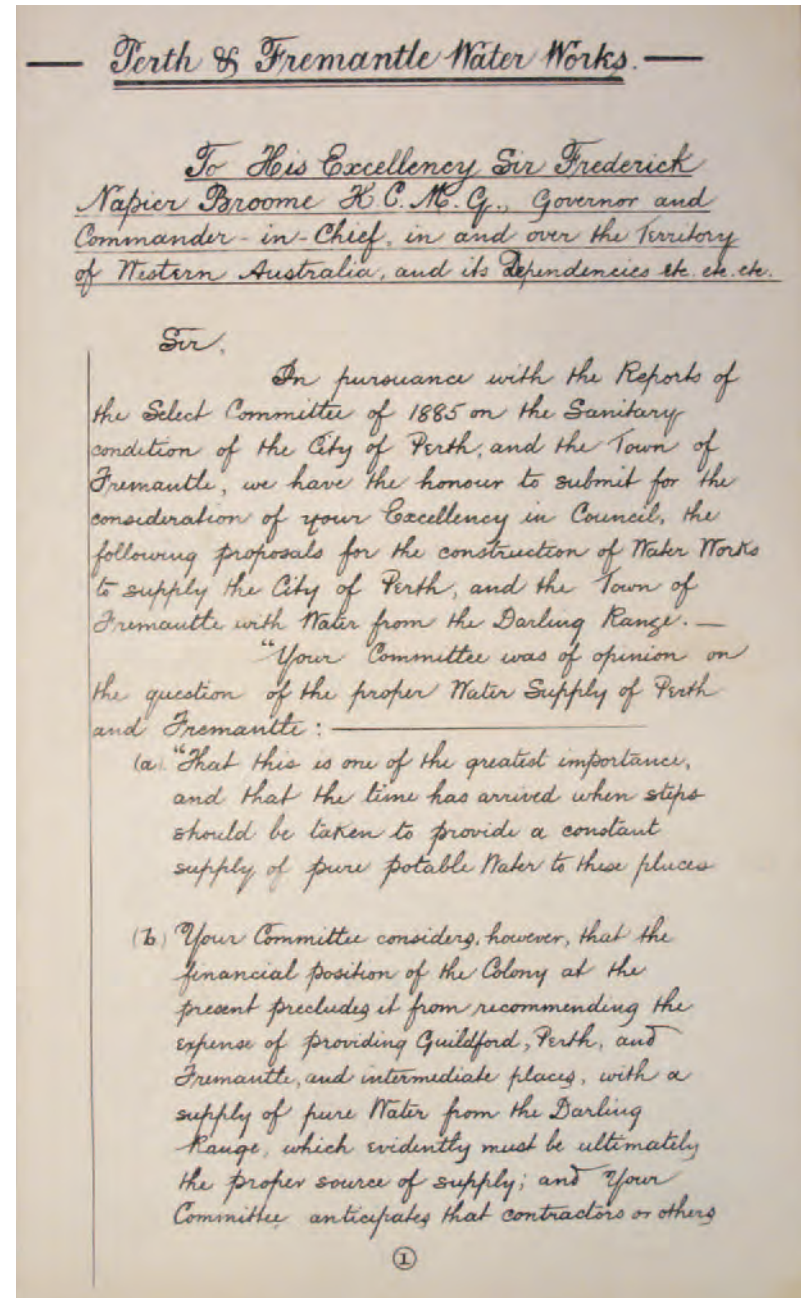 — Perth & Fremantle Water Works. —
To His Excellency Sir Frederick
Napier Broome K.C.M.G., Governor and
Commander-in-Chief, in and over the Territory
of Western Australia, and its Dependencies etc. etc. etc.
Sir,
In pursuance with the Reports of
the Select Committee of 1885 on the Sanitary
condition of the City of Perth, and the Town of
Fremantle, we have the honour to submit for the
consideration of your Excellency in Council, the
following proposals for the construction of Water Works
to supply the City of Perth, and the Town of
Fremantle with Water from the Darling Range. —
"Your Committee was of opinion on
the question of the proper Water Supply of Perth
and Fremantle : —
(a) "That this is one of the greatest importance,
and that the time has arrived when steps
should be taken to provide a constant
supply of pure potable Water to these places
(b) Your Committee considers, however, that the
financial position of the Colony at the
present precludes it from recommending the
expense of providing Guildford, Perth, and
Fremantle, and intermediate places, with a
supply of pure Water from the Darling
Range, which evidently must be ultimately
the proper source of supply; and Your
Committee anticipates that contractors or others
1